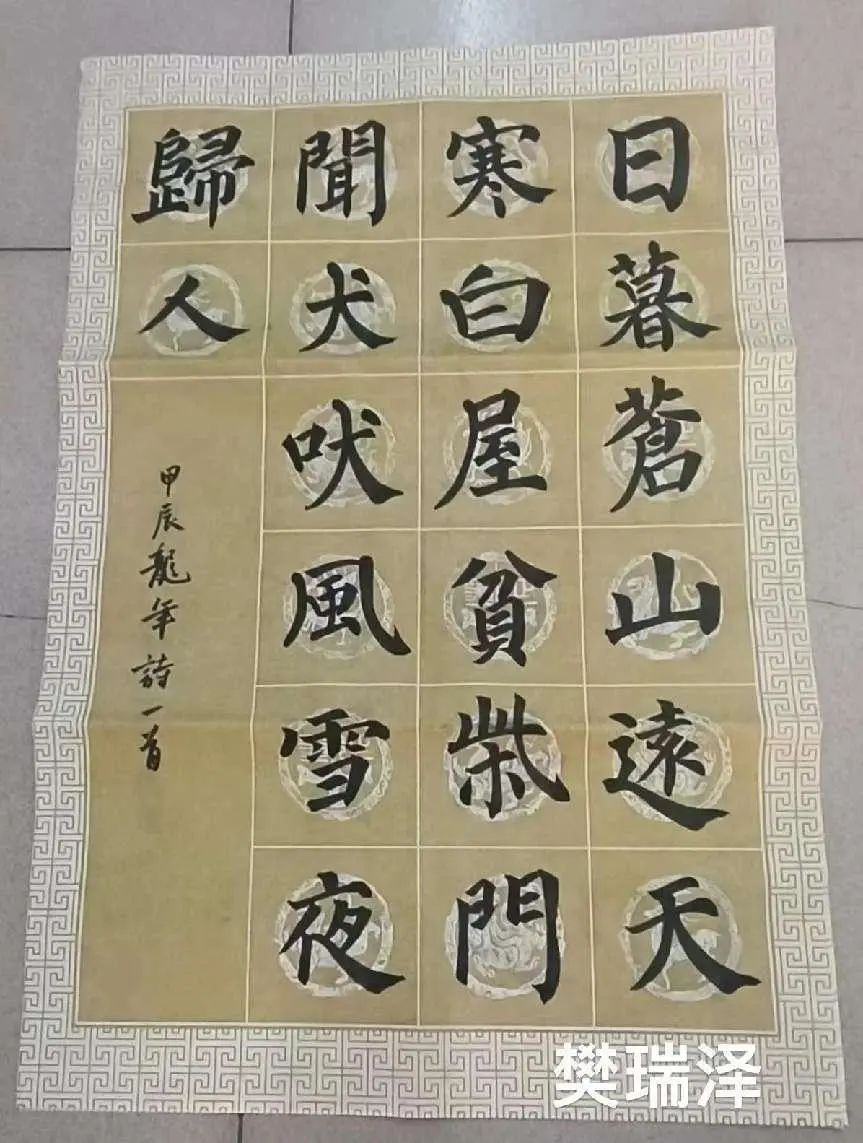 日暮蒼山遠天
寒白屋貧柴門
聞犬吠風雪夜
歸人
甲辰龍年詩一首
樊瑞泽